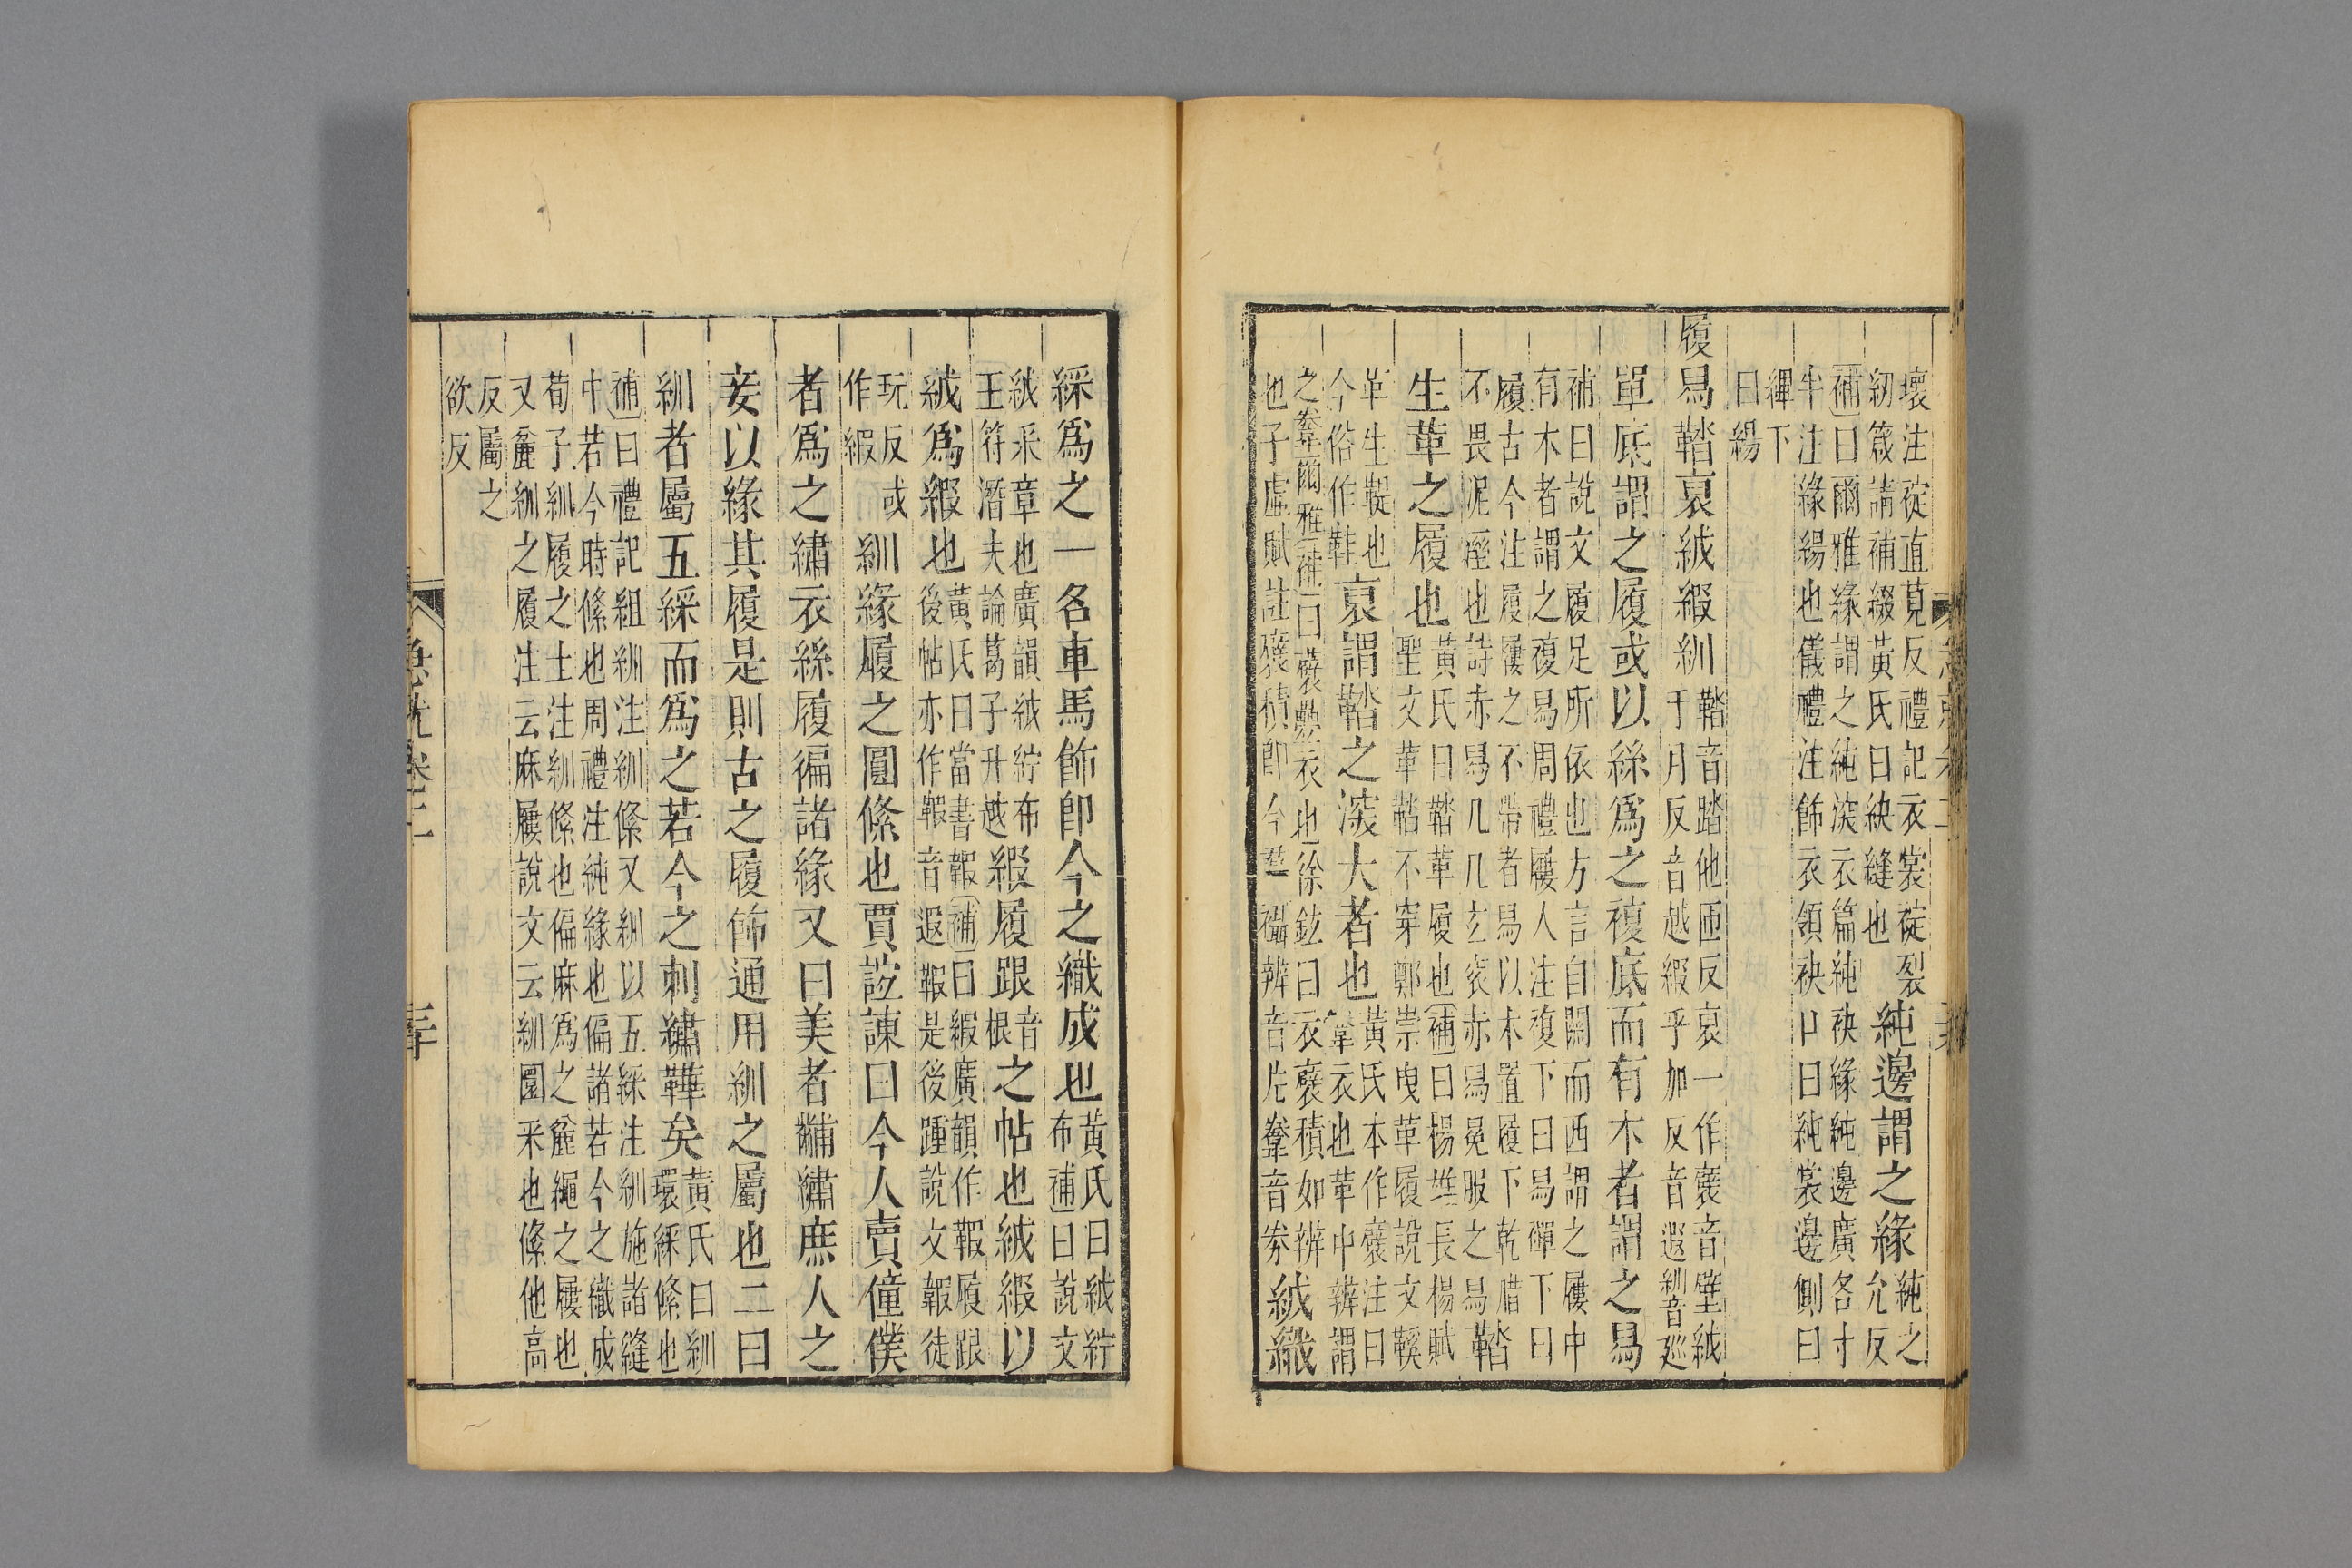 壞注䘺直莧反禮記衣裳䘺裂
紉箴請補綴黃氏曰紩縫也
純邊謂之緣
純之
允反
補曰爾雅緣謂之純深衣篇純袂緣純邊廣各寸
半注緣緆也儀禮注飾衣領袂口曰純裳邊側曰
綼下
曰緆
履舄鞜裒絨緞紃
鞜音踏他匝反裒一作襃音壁絨
于月反音越緞乎加反音遐紃音廵
單底謂之履或以絲爲之複底而有木者謂之舄
補曰說文履足所依也方言自關而西謂之屨中
有木者謂之複舄周禮屨人注複下曰舄禪下曰
履古今注履屨之不帶者舄以木置履下乾腊
不畏泥溼也詩赤舄几几玄衮赤舄冕服之舄
鞜
生革之履也
黃氏曰鞜革履也補曰楊雄長楊賦
聖文革鞜不穿鄭崇曳革履說文鞵
革生鞮也
今俗作鞋
裒謂鞜之深大者也
黃氏本作襞注曰
韏衣也革中辨謂
之韏爾雅補曰襞韏衣也徐鉉曰衣襞積如辨
也子虛賦註襞積即今羣襵辨音片韏音劵
絨織
綵爲之一名車馬飾卽今之織成也
黃氏曰絨紵
布補曰說文
絨采章也廣韻絨紵布
王符潛夫論葛子升越
緞履跟
音
根
之帖也絨緞以
絨爲緞也
黃氏曰當書報補曰緞廣韻作報履跟
後帖亦作報音遐報是後踵說文報徒
玩反或
作緞
紃緣履之圓絛也賈誼諫曰今人賣僮僕
者爲之繡衣絲履徧諸緣又曰美者黼繡庶人之
妾以緣其履是則古之履飾通用紃之屬也二曰
紃者屬五綵而爲之若今之刺繡鞾矣
黃氏曰紃
環綵絛也
補曰禮記組紃注紃絛又紃以五綵注紃施諸縫
中若今時絛也周禮注純緣也偏諸若今之織成
荀子紃履之士注紃絛也偏麻爲之麄繩之屨也
又麄紃之履注云麻屨說文云紃圜采也絛他高
反屬之
欲反
急就卷二